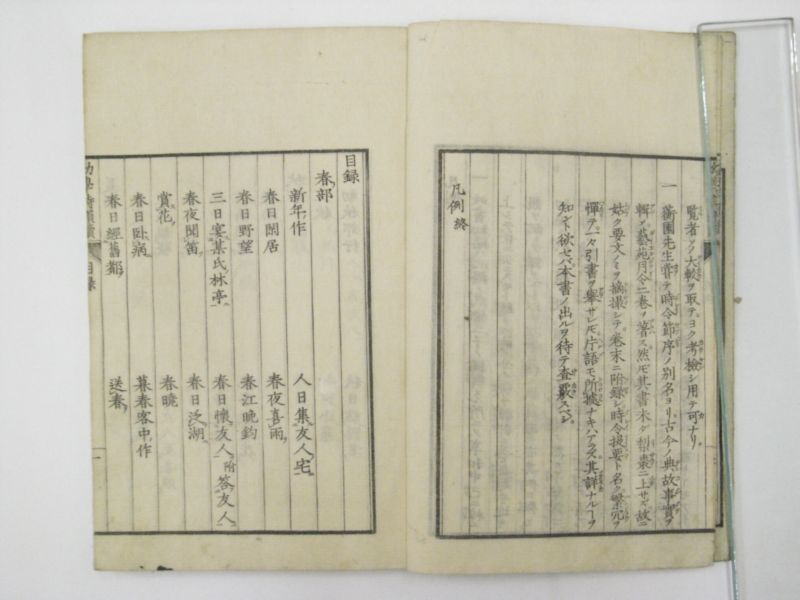 覧者ソノ大較ヲ取テヨク考檢シ用テ可ナリ
一 蘅園先生嘗テ時令節序ノ別名ヨリ古今ノ典故事實ヲ
輯ノ藝苑月令二卷ヲ著ス然レモ其書未ダ梨棗ニ上サズ故ニ
姑ク要文ノミヲ摘撮シテ卷末ニ附録シ時令提要ト名ク繁冗ヲ
憚テ一々引書ヲ擧サレモ片語モ所據ナキハアラズ其詳ナルヿヲ
知ント欲セバ本書ノ出ルヲ待テ査覈スベシ
凡例終
目録
春部
新年作
人日集友人宅
春日閑居
春夜喜雨
春日野望
春江晩釣
三日宴某氏林亭
春日懷友人 附答友人
春夜聞笛
春日泛湖
賞花
春曉
春日臥病
暮春客中作
春日經舊都
送春
目録
一